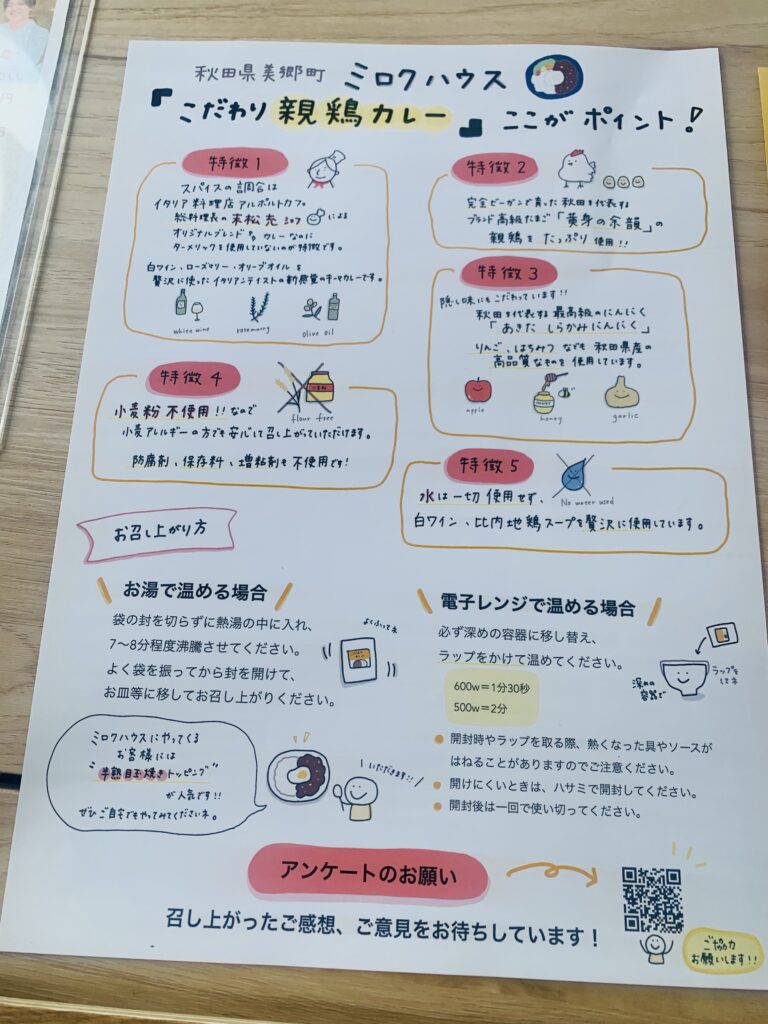 秋田県美郷町 ミロクハウス
『こだわり親鶏カレー』 ここがポイント!
特徴1
スパイスの調合は
イタリア料理店アルポルトカフェ
総料理長の末松光シェフによる
オリジナルブレンド。カレーなのに
ターメリックを使用していないのが特徴です。
白ワイン・ローズマリー・オリーブオイルを
贅沢に使ったイタリアンテイストの新感覚のキーマカレーです。
white wine rosemarry olive oil
特徴2
完全ビーガンで育った秋田を代表する
ブランド高級たまご「黄身の余韻」の
親鶏をたっぷり使用!!
特徴3
隠し味にもこだわっています!!
秋田を代表する最高級のにんにく
「あきたしらかみにんにく」
りんご、はちみつなども秋田県産の
高品質なものを使用しています。
apple honey garlic
特徴4
flour free
小麦粉不使用!!なので
小麦アレルギーの方でも安心して召し上がっていただけます。
防腐剤、保存料、増粘剤も不使用です!
特徴5
No water used
水は一切使用せず、
白ワイン、比内地鶏スープを贅沢に使用しています。
お召し上がり方
お湯で温める場合
袋の封を切らずに熱湯の中に入れ、
7〜8分程度沸騰させてください。
よく袋を振ってから封を開けて、
お皿等に移してお召し上がりください。
よくふってネ
電子レンジで温める場合
必ず深めの容器に移し替え、
ラップをかけて温めてください。
600w=1分30秒
500w=2分
深めの
容器で
ラップを
してネ
開封時やラップを取る際、熱くなった具やソースが
はねることがありますのでご注意ください。
開けにくいときは、ハサミで開封してください。
開封後は一回で使い切ってください。
ミロクハウスにやってくる
お客様には
"半熟目玉焼きトッピング"
が人気です!!
ぜひご自宅でもやってみてくださいネ。
いただきます!!
アンケートのお願い
召し上がったご感想、ご意見をお待ちしています!
ご協力
お願いします!!